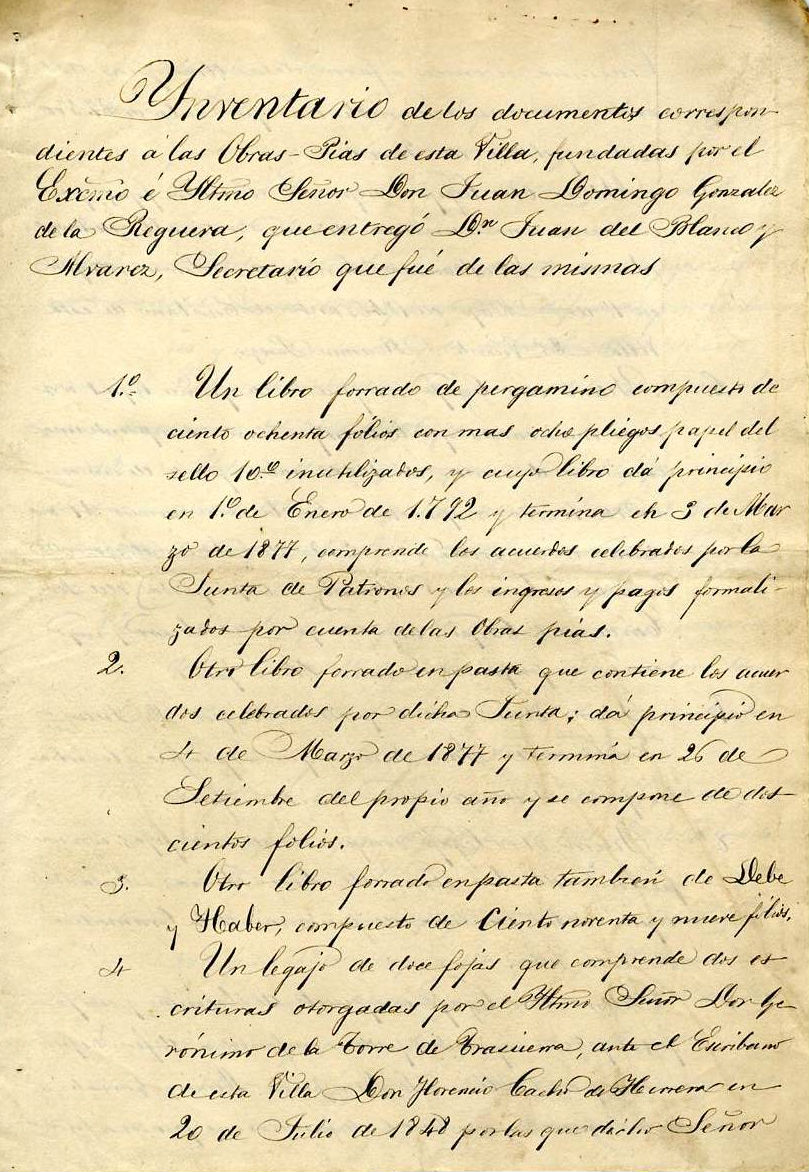 Ynventario de los documentos correspon-
dientes á las Obras-Pias de esta Villa, fundadas por el
Excmo é Yltmo Señor Don Juan Domingo Gonzalez
de la Reguera, que entregó Dn Juan del Blanco y
Alvarez, Secretario que fué de las mismas
1.º Un libro forrado de pergamino compuesto de
ciento ochenta folios con mas ocho pliegos papel del
sello 10.º inutilizados, y cuyo libro dá principio
en 1.º de Enero de 1.792 y termina en 3 de Mar
zo de 1877, comprende los acuerdos celebrados por la
Junta de Patronos y los ingresos y pagos formali-
zados por cuenta de las Obras pias.
2. Otro libro forrado en pasta que contiene los acuer
dos celebrados por dicha Junta; dá principio en
4 de Marzo de 1877 y termina en 26 de
Setiembre del propio año y se compone de dos
cientos folios.
3. Otro libro forrado en pasta tambien de Debe
y Haber, compuesto de Ciento noventa y nueve folios.
4 Un legajo de doce fojas que comprende dos es
crituras otorgadas por el Yltmo Señor Don Ge
rónimo de la Torre de Trasierra, ante el Escribano
de esta Villa Don Florencio Cacho de Herrera en
20 de Julio de 1848 por las que dicho Señor